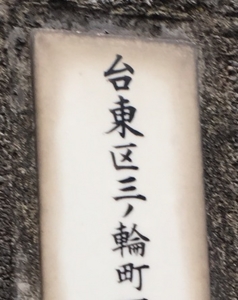 台東区三ノ輪町